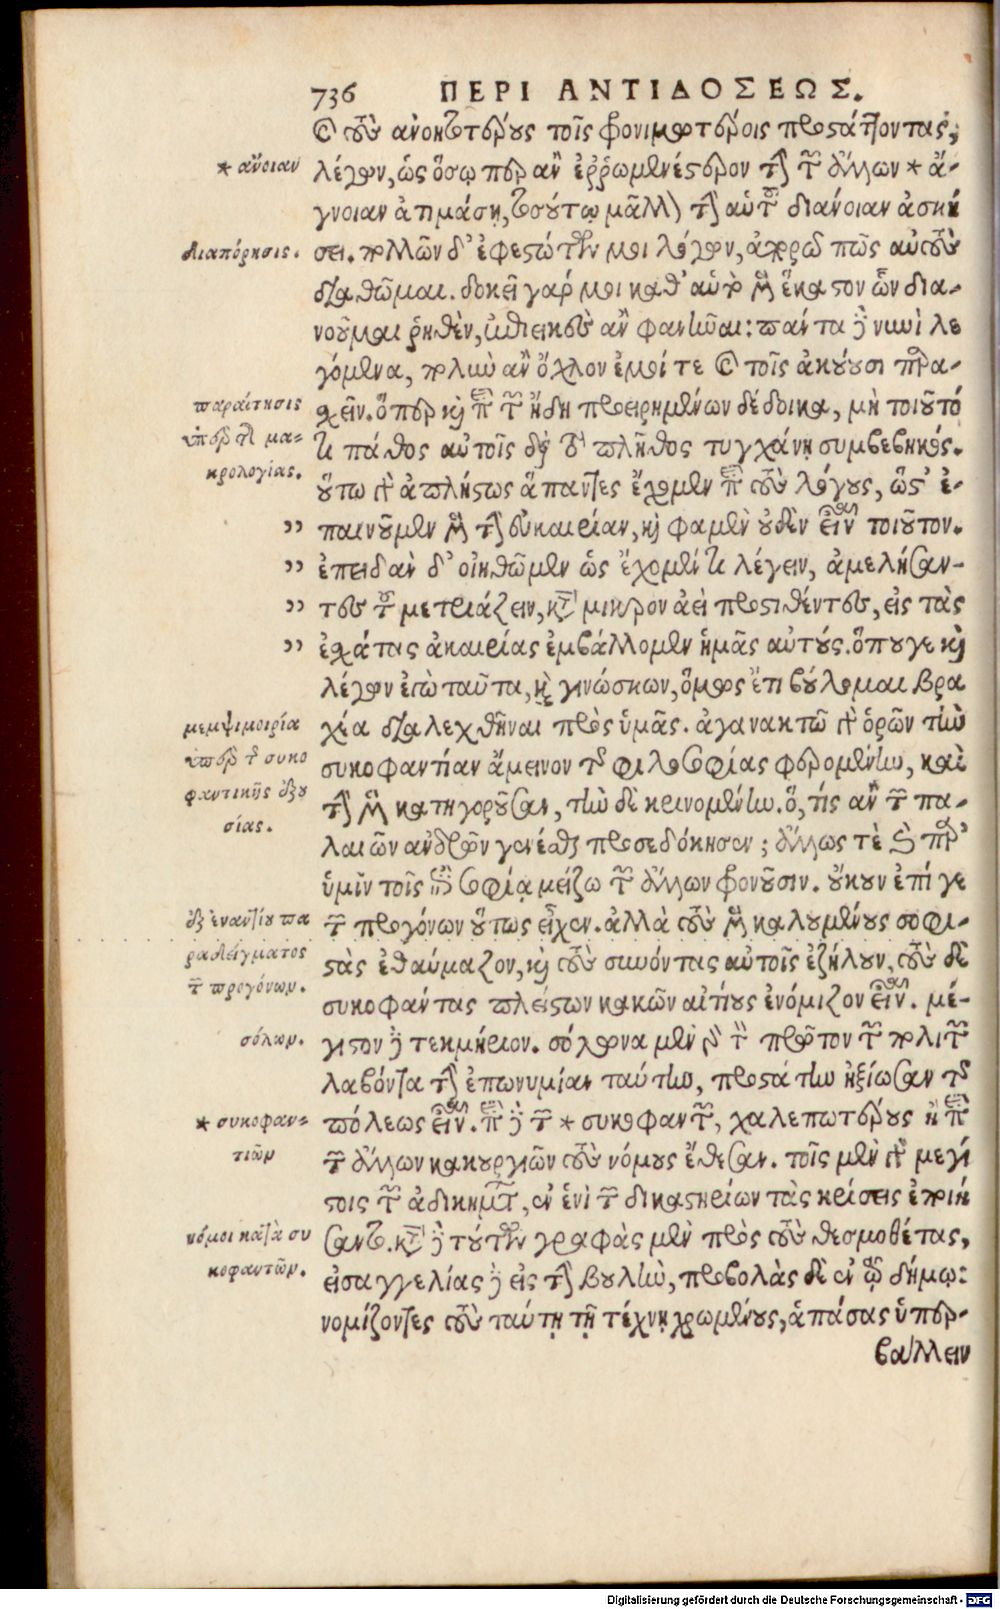 736 ΠΕΡΙ ΑΝΤΙΔΟΣΕΩΣ.
καὶ τοὺς ἀνοητοτέρους τοῖς φρονιμωτέροις προστάττοντας,
* ἄνοιαν
λέγων, ὡς ὅσῳ περ ἂν ἐῤῥωμενέστερον τὴν τῶν ἄλλων * ἄ-
γνοιαν ἀτιμάσῃ, τοσούτῳ μᾶλλον τὴν αὑτοῦ διάνοιαν ἀσκή
διαπόρησις.
σει. πολλῶν δ' ἐφεστώτων μοι λόγων, ἀπορῶ πῶς αὐτοὺς
διαθῶμαι. δοκεῖ γάρ μοι καθ' αὑτὸ μὲν ἕκαστον ὧν δια-
νοοῦμαι ῥηθὲν, ἐπιεικὲς ἂν φανῆναι: πάντα δὲ νυνὶ λε
γόμενα, πολὺν ἂν ὄχλον ἐμοί τε καὶ τοῖς ἀκούουσι παρα-
παραίτησις
ὑπὲρ τῆς μα-
κρολογίας.
χεῖν. ὅπερ καὶ περὶ τῶν ἤδη προειρημένων δέδοικα, μὴ τοιοῦτό
τι πάθος αὐτοῖς διὰ τὸ πλῆθος τυγχάνῃ συμβεβηκός.
οὕτω γὰρ ἀπλήστως ἅπαντες ἔχομεν περὶ τοὺς λόγους, ὥστ' ἐ-
,, παινοῦμεν μὲν τὴν εὐκαιρίαν, καὶ φαμὲν οὐδὲν εἶναι τοιοῦτον.
,, ἐπειδὰν δ' οἰηθῶμεν ὡς ἔχομέν τι λέγειν, ἀμελήσαν-
,, τες τοῦ μετριάζειν, κατὰ μικρὸν ἀεὶ προστιθέντες, εἰς τὰς
,, ἐσχάτας ἀκαιρίας ἐμβάλλομεν ἡμᾶς αὐτούς. ὅπου γε καὶ
λέγων ἐγὼ ταῦτα, καὶ γινώσκων, ὅμως ἔτι βούλομαι βρα
μεμψιμοιρία
ὑπὲρ τῆς συκο
φαντικῆς ἐξου
σίας.
χέα διαλεχθῆναι πρὸς ὑμᾶς. ἀγανακτῶ γὰρ ὁρῶν τὴν
συκοφαντίαν ἄμεινον τῆς φιλοσοφίας φερομένην, καὶ
τὴν μὲν κατηγοροῦσαν, τὴν δὲ κρινομένην. ὅ, τίς ἂν τῶν πα-
λαιῶν ἀνδρῶν γενέσθαι προσεδόκησεν; ἄλλως τε καὶ παρ'
ὑμῖν τοῖς ἐπὶ σοφίᾳ μείζω τῶν ἄλλων φρονοῦσιν. οὔκουν ἐπί γε
ἐξ ἐναντίου πα
ραδείγματος
τῶν προγόνων.
τῶν προγόνων οὕτως εἶχεν. ἀλλὰ τοὺς μὲν καλουμένους σοφι-
στὰς ἐθαύμαζον, καὶ τοὺς συνόντας αὐτοῖς ἐζήλουν, τοὺς δὲ
συκοφάντας πλείστων κακῶν αἰτίους ἐνόμιζον εἶναι. μέ-
σόλων.
γιστον δὲ τεκμήριον. σόλωνα μὲν γὰρ τὸν πρῶτον τῶν πολιτῶν
λαβόντα τὴν ἐπωνυμίαν ταύτην, προστάτην ἠξίωσαν τῆς
* συκοφαν-
τιῶν
πόλεως εἶναι. περὶ δὲ τῶν * συκοφαντῶν, χαλεπωτέρους ἢ περὶ
τῶν ἄλλων κακουργιῶν τοὺς νόμους ἔθεσαν. τοῖς μὲν γὰρ μεγί
στοις τῶν ἀδικημάτων, ἐν ἑνὶ τῶν δικαστηρίων τὰς κρίσεις ἐποιή
νόμοι κατὰ συ
κοφαντῶν.
σαντο. κατὰ δὲ τούτων γραφὰς μὲν πρὸς τοὺς θεσμοθέτας,
εἰσαγγελίας δὲ εἰς τὴν βουλὴν, προβολὰς δὲ ἐν τῷ δήμῳ:
νομίζοντες τοὺς ταύτῃ τῇ τέχνῃ χρωμένους, ἁπάσας ὑπερ-
βάλλειν
Digitalisierung gefördert durch die Deutsche Forschungsgemeinschaft - DFG